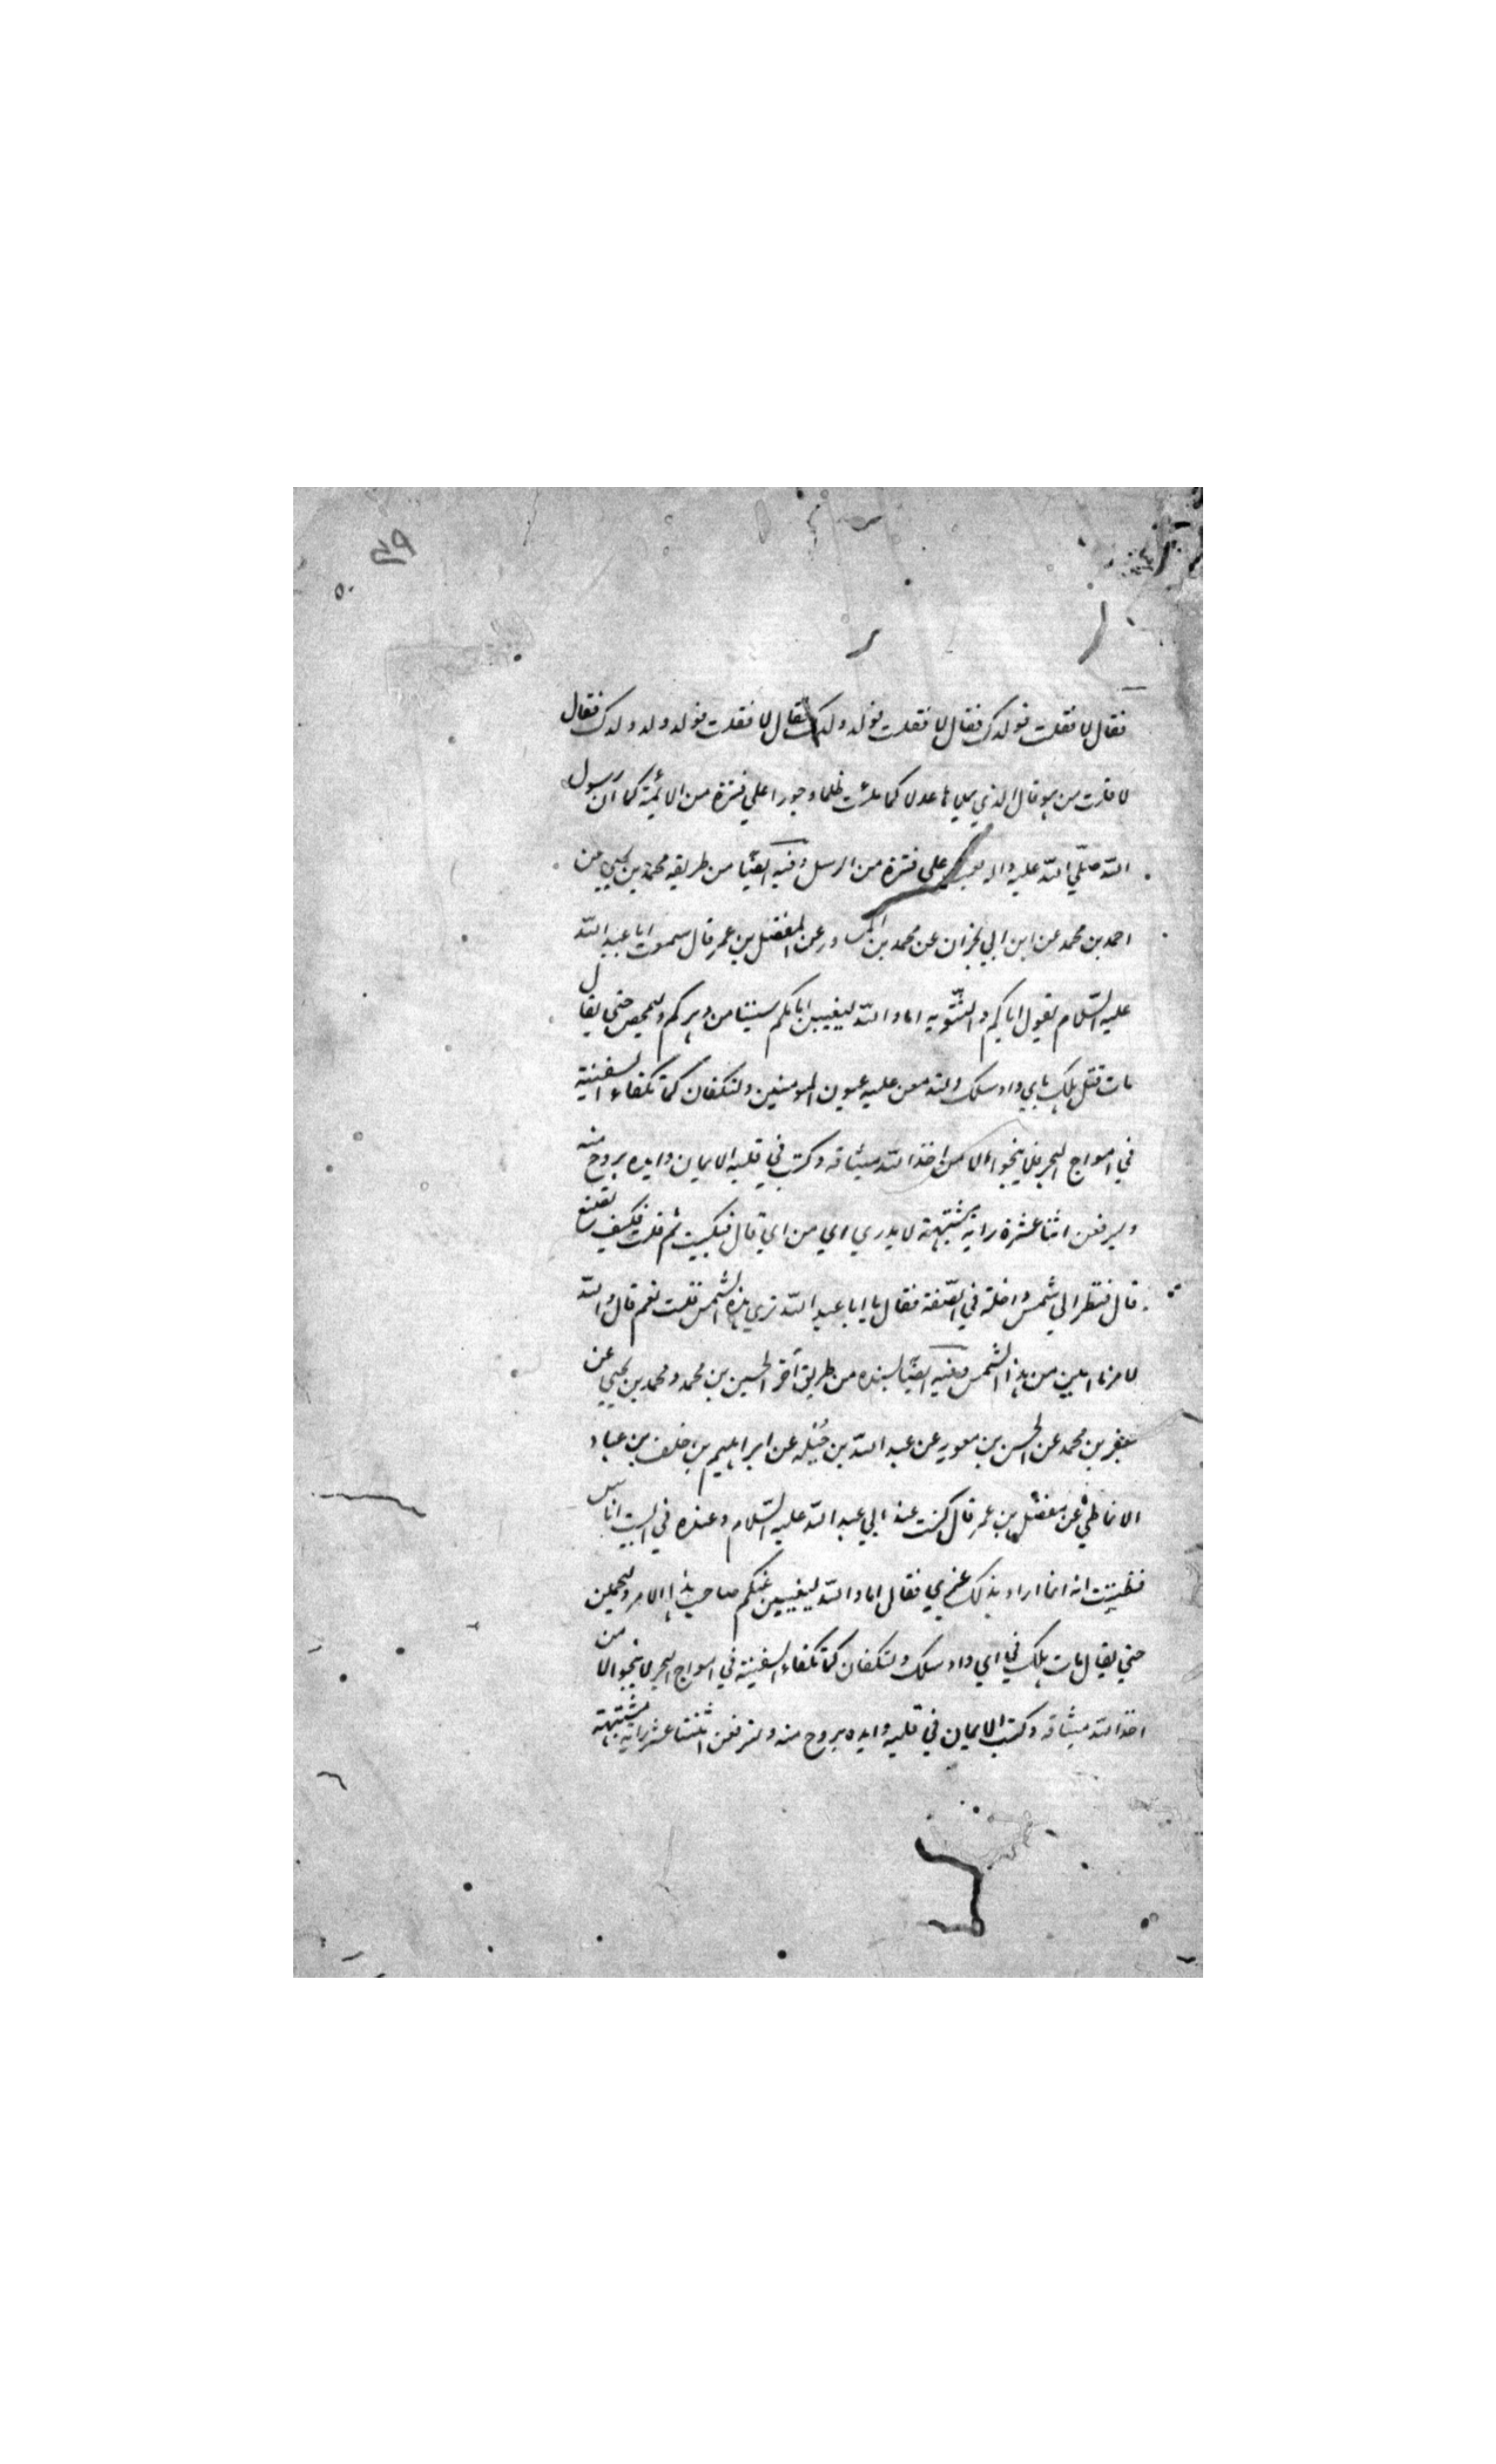 ٥٩
فقال لا فقلت فولدك فقال لا فقلت فولد ولدك فقال لا فقلت فولد ولد ولدك فقال
لا قلت من هو قال الذي يملاها عدلا كما ملئت ظلما وجورا علي فترة من الائمة كما ان رسول
اللّه صلّي اللّه عليه واله بعث علي فترة من الرسل وفيه ايضًا من طريقه محمد بن يحيي عن
احمد بن محمد عن ابن ابي نجران عن محمد بن المساور عن المفضل بن عمر قال سمعت ابا عبد اللّه
عليه السّلام يقول اياكم والتّنويه اما واللّه ليغيبن امامكم سنينا من دهركم وليمحص حتي يقال
مات قتل هلك باي واد سلك ولتدمعن عليه عيون المومنين ولتكفان كما تكفاء السفينة
في امواج البحر فلا ينجوا الا من اخذ اللّه ميثاقه وكتب في قلبه الايمان وايده بروح منه
وليرفعن اثنا عشرة راية مشتبهة لا يدري اي من اي قال فبكيت ثم قلت فكيف نصنع
قال فنظر الي شمس داخلة في الصّفة فقال يا ابا عبد اللّه تري هذه الشمس قلت نعم قال واللّه
لامرنا ابين من هذا الشمس وفيه ايضًا بسنده من طريق آخر الحسين بن محمد ومحمد بن يحيي عن
جعفر بن محمد عن الحسن بن معوية عن عبد اللّه بن جبله عن ابراهيم بن خلف بن عباد
الانماطي عن مفضل بن عمر قال كنت عند ابي عبد اللّه عليه السّلام وعنده في البيت اناس
فظننت انه انما اراد بذلك غيري فقال اما واللّه ليغيبن عنكم صاحب هذا الامر وليحملن
حتي يقال مات هلك في اي واد سلك ولتكفان كما تكفاء السفينة في امواج البحر لا ينجو الا من
اخذ اللّه ميثاقه وكتب الايمان في قلبه وايده بروح منه ولترفعن اثنتا عشر راية مشتبهة